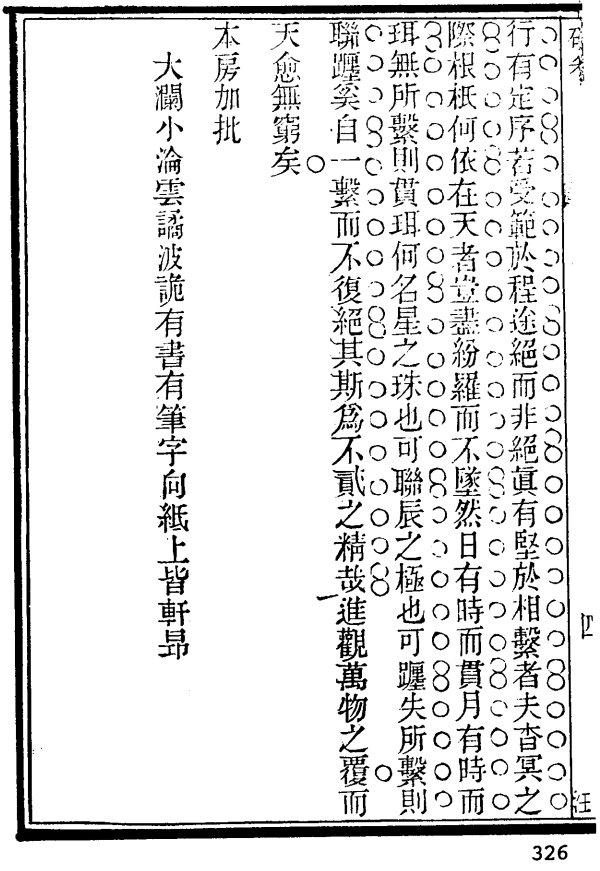 行有定序若受範於程途絕而非絕眞有堅於相繫者夫杳冥之
際根柢何依在天者豈盡紛羅而不墜然日有時而貫月有時而
珥無所繫則貫珥何名星之珠也可聯辰之極也可躔失所繫則
聯躔奚自一繫而不復絕其斯爲不貳之精哉進觀萬物之覆而
天愈無窮矣
本房加批
大瀾小淪雲譎波詭有書有筆字向紙上皆軒昻
四
326